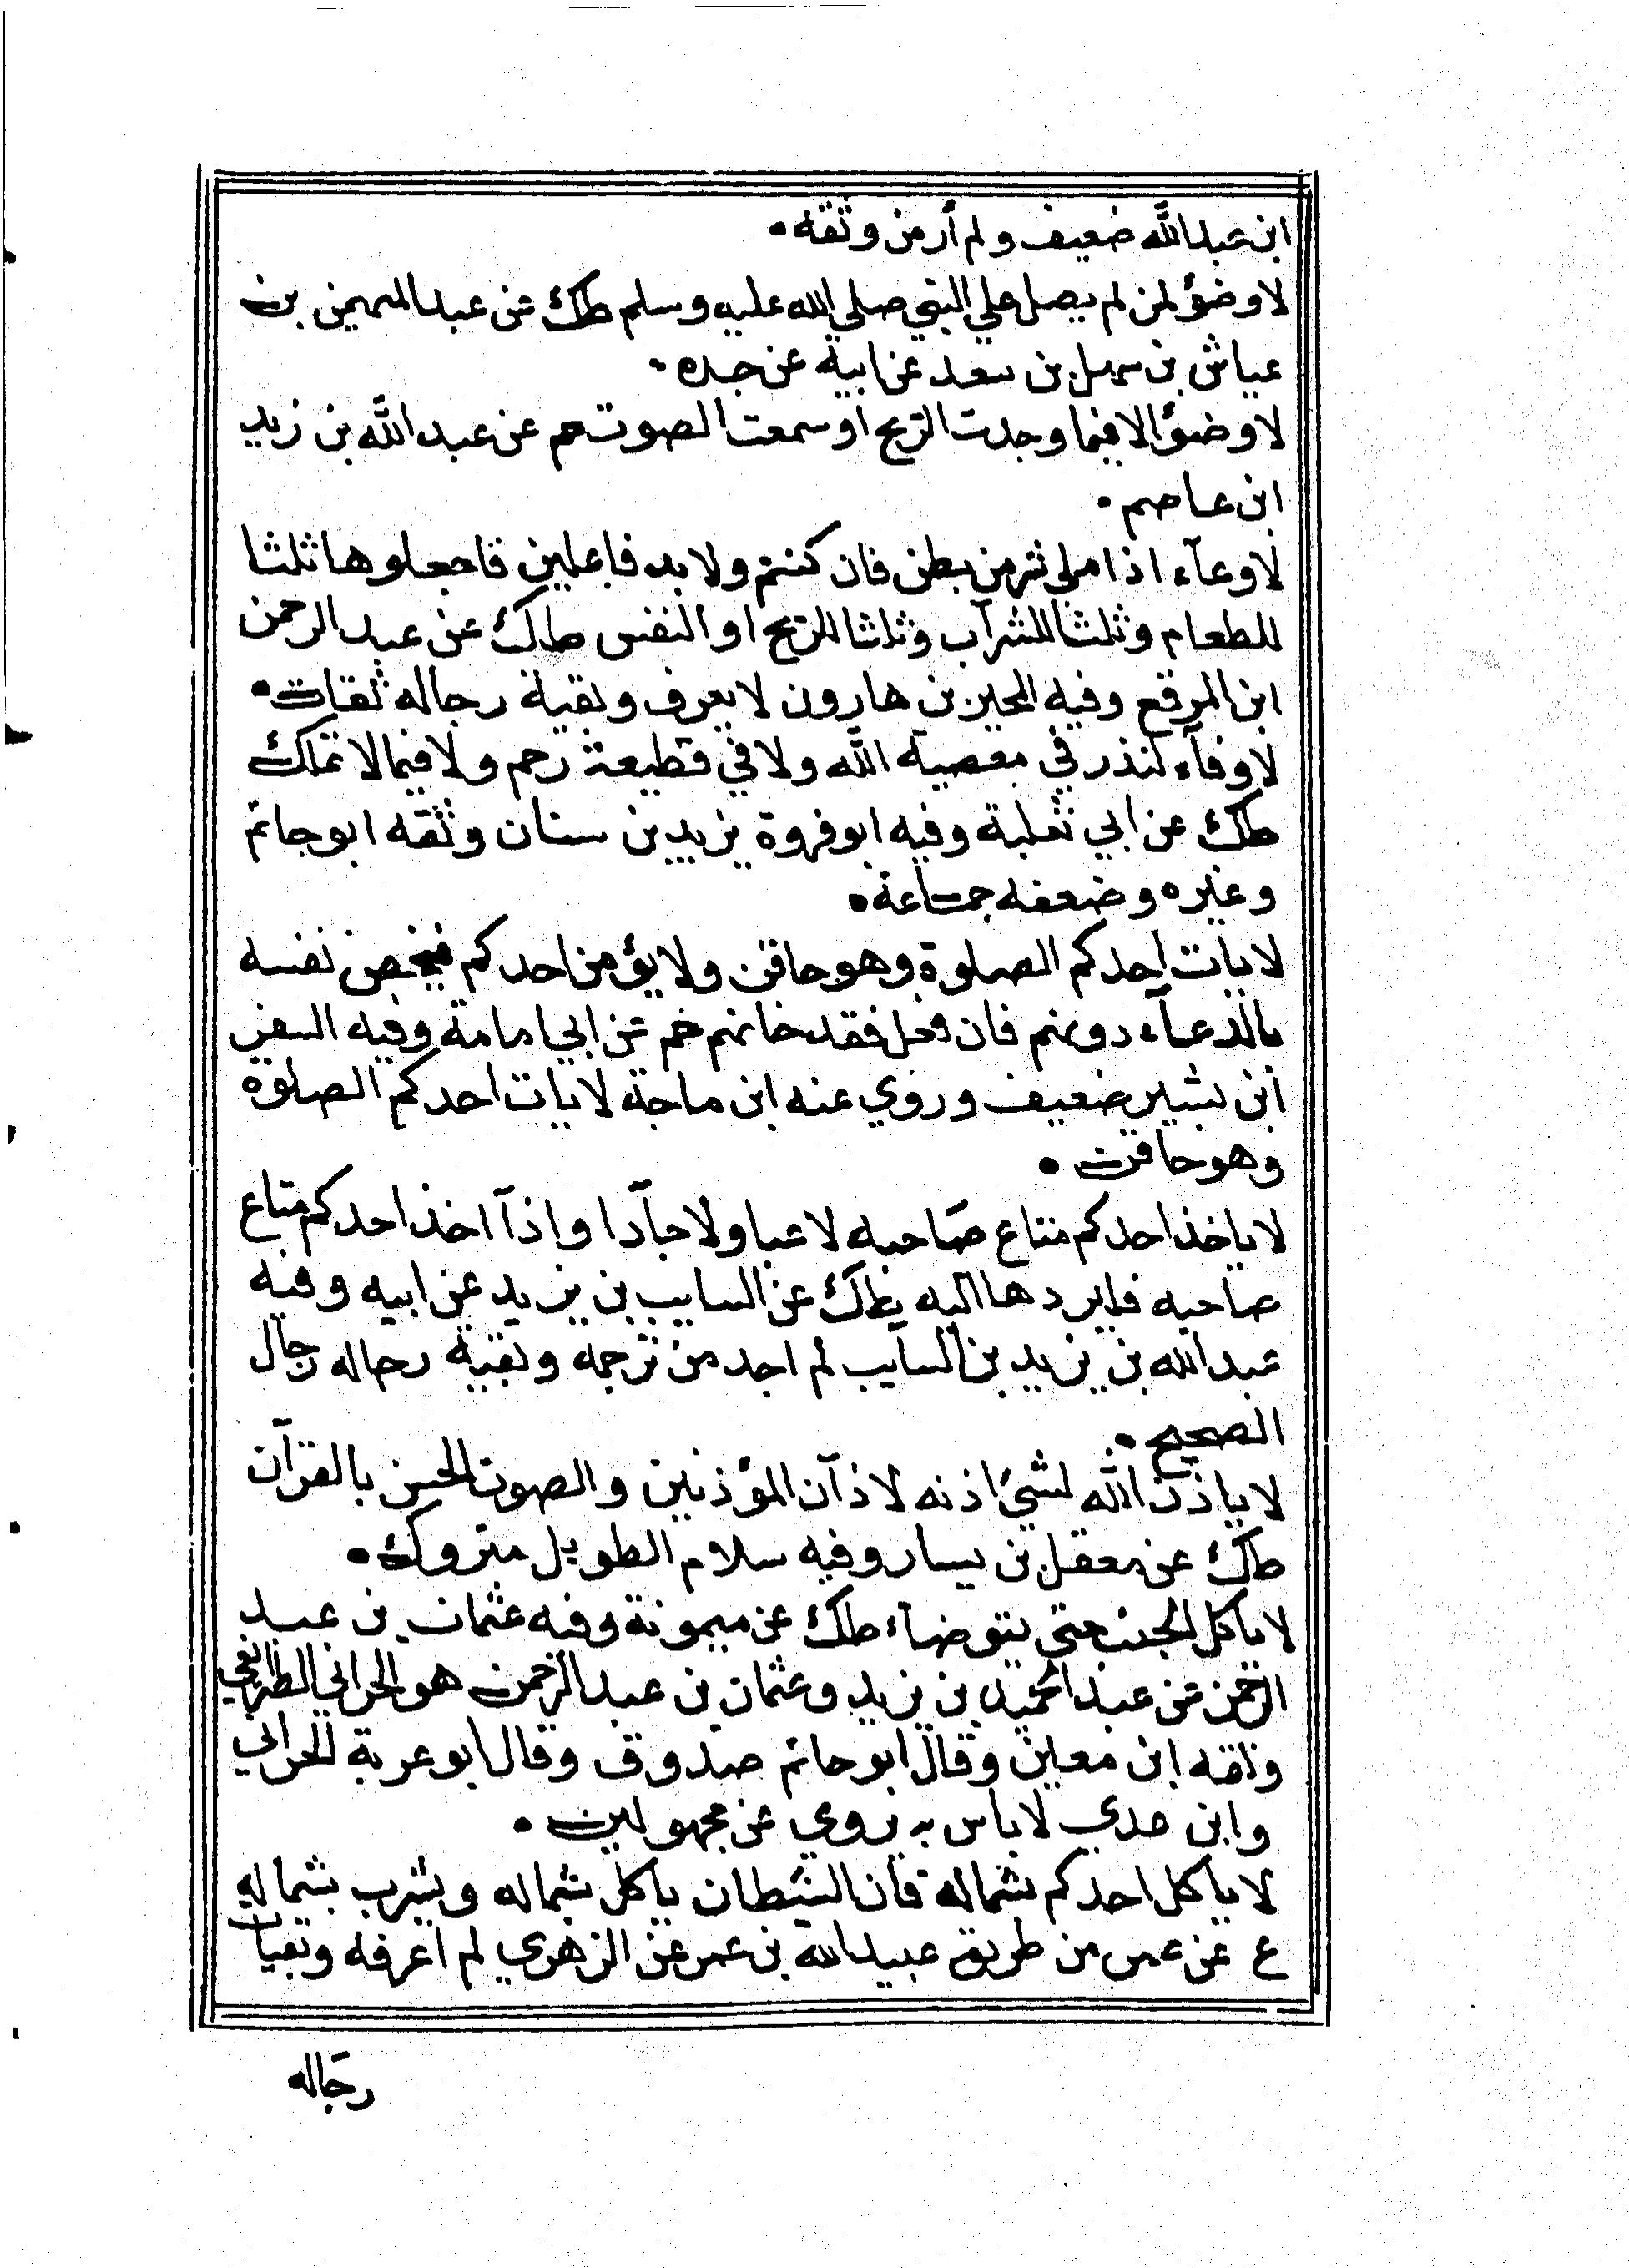 ابن عبد الله ضعيف ولم أر من وثقه •
لا وضؤ لمن لم يصل علي النبي صلي الله عليه وسلم طك عن عبد المهيمن بن
عياش بن سهل بن سعد عن ابيه عن جده •
لا وضؤ الا فيما وجدت الريح او سمعت الصوت حم عن عبد الله بن زيد
ابن عاصم •
لا وعآء اذا ملي شر من بطن فان كنتم ولا بد فاعلين فاجعلوها ثلثا
للطعام وثلثا للشرآب وثلثا للريح او النفس طك عن عبد الرحمن
ابن المرقع وفيه المحبر بن هارون لا يعرف وبقية رجاله ثقات •
لا وفآء لنذر في معصية الله ولا في قطيعة رحم ولا فيما لا تملك
طك عن ابي ثعلبة وفيه ابو فروة يزيد بن سنان وثقه ابو حاتم
وغيره وضعفه جماعة •
لا يات احدكم الصلوة وهو حاقن ولا يؤمن احدكم فيخص نفسه
بالدعآء دونهم فان فعل فقد خانهم حم عن ابي امامة وفيه السفر
ابن بشير ضعيف وروي عنه ابن ماجة لا يات احدكم الصلوة
وهو حاقن •
لا ياخذ احدكم متاع صاحبه لاعبا ولا جآدا واذآ اخذ احدكم متاع
صاحبه فليردها اليه طك عن السايب بن يزيد عن ابيه وفيه
عبد الله بن يزيد بن السايب لم اجد من ترجمه وبقية رجاله رجال
الصحيح •
لا ياذن الله لشئ اذنه لاذآن المؤذنين والصوت الحسن بالقرآن
طك عن معقل بن يسار وفيه سلام الطويل متروك •
لا ياكل الجنب حتي يتوضاء طك عن ميمونة وفيه عثمان بن عبد
الرحمن عن عبد الحميد بن يزيد وعثمان بن عبد الرحمن هو الحراني الطرايفي
وثقه ابن معين وقال ابو حاتم صدوق وقال ابو عربة الحراني
وابن عدي لا باس به يروي عن مجهولين •
لا يأكل احدكم بشماله فان الشيطان ياكل بشماله ويشرب بشماله
ع عن عمر من طريق عبيد الله بن عمر عن الزهري لم اعرفه وبقيات
رجاله